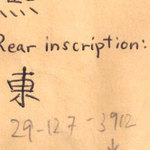 Rear inscription:
東
29-127-3912